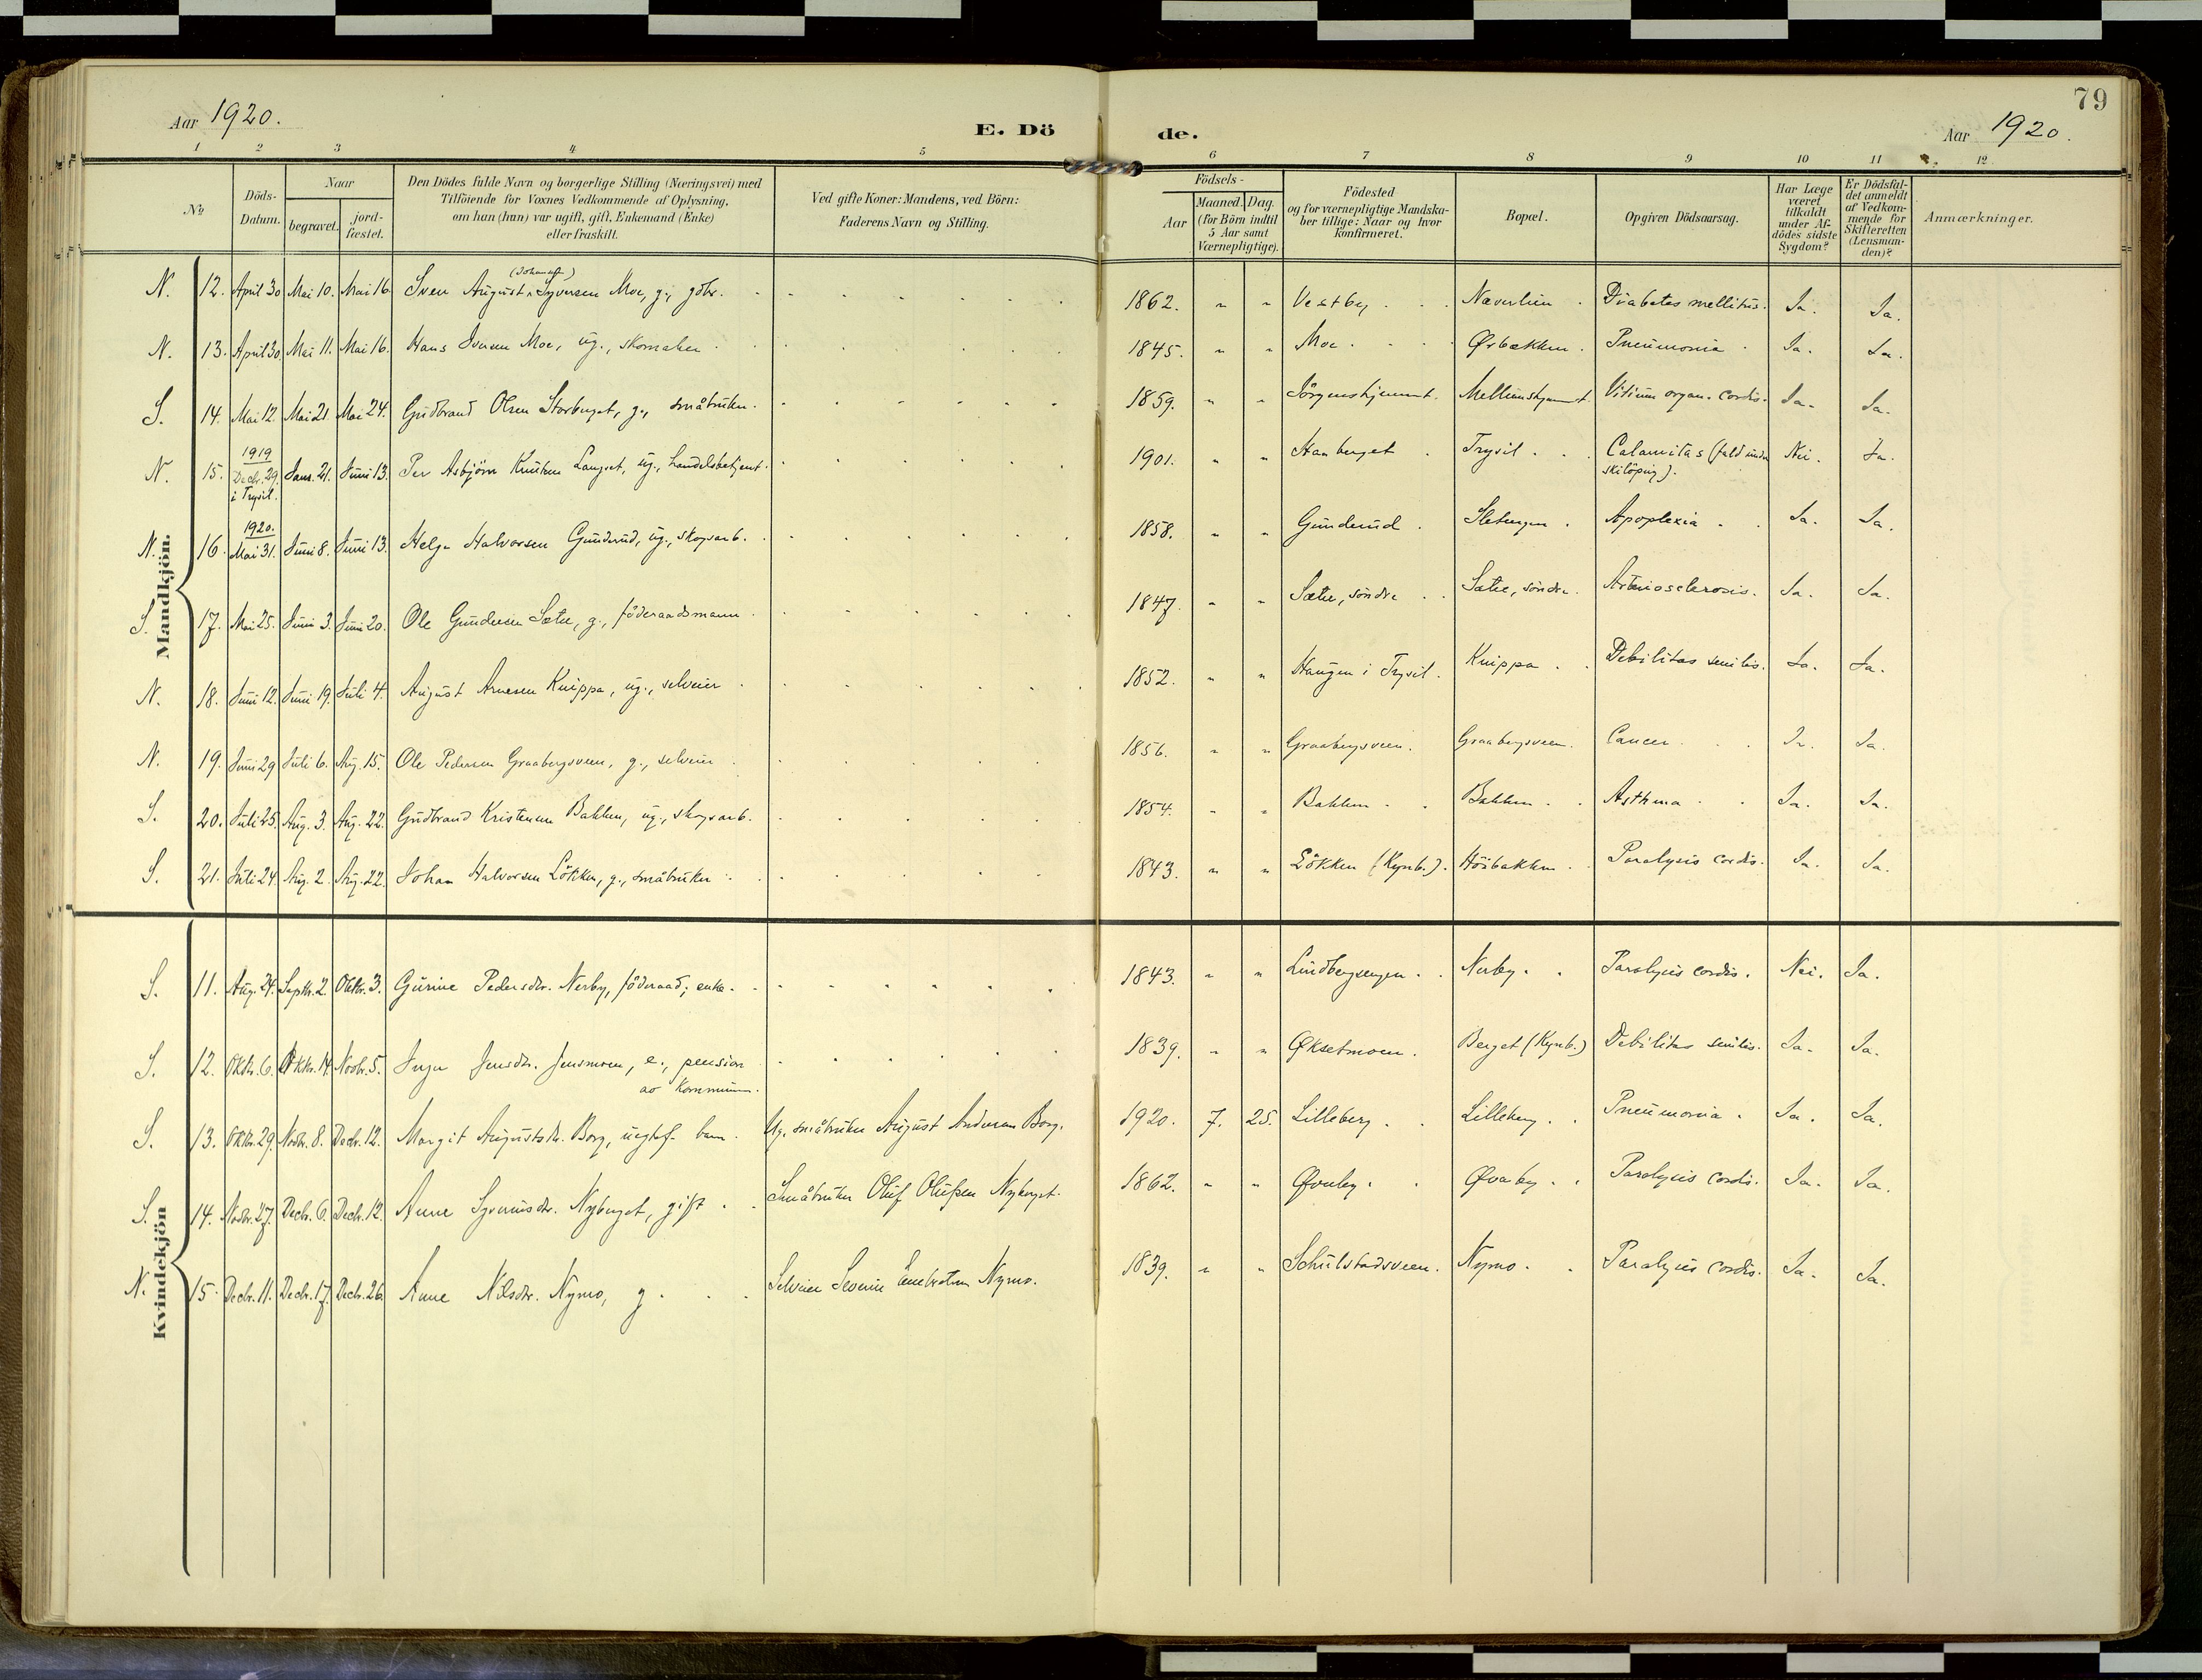 79
Aar 1920.
E. Dö de.
Aar 1920.
1 2 3 4 5 6 7 8 9 10 11 12
No
Döds-Datum.
Naar
begravet.
jord-fæstet.
Den Dödes fulde Navn og borgerlige Stilling (Næringsvei) med
Tilföiende for Voxnes Vedkommende af Oplysning,
om han (hun) var ugift, gift, Enkemand (Enke)
eller fraskilt.
Ved gifte Koner: Mandens, ved Börn:
Faderens Navn og Stilling.
Födsels-
Aar
Maaned. Dag.
(for Börn indtil
5 Aar samt
Værnepligtige).
Födested
og for værnepligtige Mandska-
ber tillige: Naar og hvor
konfirmeret.
Bopæl.
Opgiven Dödsaarsag.
Har Læge
været
tilkaldt
under Af-
dödes sidste
Sygdom?
Er Dödsfal-
det anmeldt
af Vedkom-
mende for
Skifteretten
(Lensman-
den)?
Anmærkninger.
Mandkjön.
(Johannes)
N. 12. April 30 Mai 10. Mai 16 Sven August Syversen Moe, g., gbr. 1862. " " Vestby Næverlien Diabetes mellitus. Ja. Ja.
N. 13. April 30 Mai 11. Mai 16. Hans Iversen Moe, ug., skomaker 1845. " " Moe Ørbækken. Pneumonia Ja. Ja.
S. 14. Mai 12. Mai 21. Mai 24. Gudbrand Olsen Storberget, g., småbruker. 1859. " " Jörgenshjemmet. Mellemshjemmet. Vitium organ. cordis. Ja. Ja.
1919
N. 15. Decbr. 29. Janr. 21. Juni 13. Per Asbjörn Knutsen Langset, ug., handelsbetjent. 1901. " " Haaberget Trysil Calamitas (fald under Nei. Ja.
i Trysil. skilöping).
1920.
N. 16. Mai 31. Juni 8. Juni 13. Helge Halvorsen Gunderud, ug., skogsarb. 1858. " " Gunderud Sletengen Apoplexia Ja. Ja.
S. 17. Mai 25. Juni 3. Juni 20. Ole Gundersen Sætre, g., föderaadsmann 1847. " " Sætre, söndre Sætre, söndre. Arteriosclerosis. Ja. Ja.
N. 18. Juni 12. Juni 19. Juli 4. August Arnesen Knippa, ug., selveier 1852. " " Haugen i Trysil. Knippa Debilitas senilis. Ja. Ja.
N. 19. Juni 29 Juli 6. Aug. 15. Ole Pedersen Graabergsveen, g., selveier 1856. " " Graabergsveen. Graabergsveen. Cancer Ja. Ja.
S. 20. Juli 25. Aug. 3. Aug. 22. Gudbrand Kristensen Bakken, ug., skogsarb. 1854. " " Bakken Bakken Asthma Ja. Ja.
S. 21. Juli 24. Aug. 2. Aug. 22. Johan Halvorsen Lökken, g., småbruker 1843. " " Lökken (Kynb.). Höibakken Paralysis cordis. Ja. Ja.
Kvindekjön
S. 11. Aug. 24. Septbr. 2. Oktbr. 3. Gurine Pedersdr. Nerby, föderaad, enke. 1843. " " Lindbergsengen Nerby. Paralysis cordis. Nei. Ja.
S. 12. Oktbr. 6. Oktbr. 14. Novbr. 5. Inga Jensdr. Jensmoen, e., pension 1839. " " Øksetmoen. Berget (Kynb.) Debilitas senilis. Ja. Ja.
av Kommunen.
S. 13. Oktbr. 29. Novbr. 8. Decbr. 12. Margit Augustsdr. Borg, uegtef. barn. Ug. småbruker August Andersen Borg. 1920. 7. 25. Lilleberg Lilleberg Pneumonia. Ja. Ja.
S. 14. Novbr. 27. Decbr. 6. Decbr. 12. Anne Syverinsdr. Nyberget, gift Småbruker Oluf Olufsen Nyberget. 1862. " " Øvreby Øvreby Paralysis cordis. Ja. Ja.
N. 15. Decbr. 11. Decbr. 17. Decbr. 26. Anne Nilsdr. Nymo, g. Selveier Severin Embretsen Nymo. 1839. " " Schulstadsveen. Nymo. Paralysis cordis. Ja. Ja.